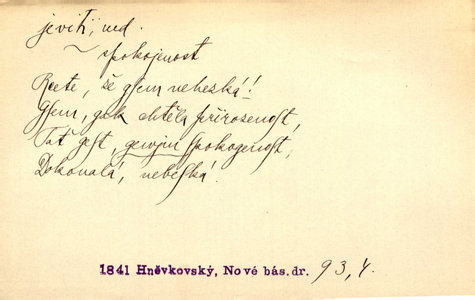 jeviti, ned.
~ spokojenost
Rcete, že gsem nehezká!!
Gsem, gak chtěla přirozenost,
Tať gest, gewjm spokogenost,
Dokonalá, nebeská.
1841 Hněvkovský, Nové bás. dr. 93, 4.